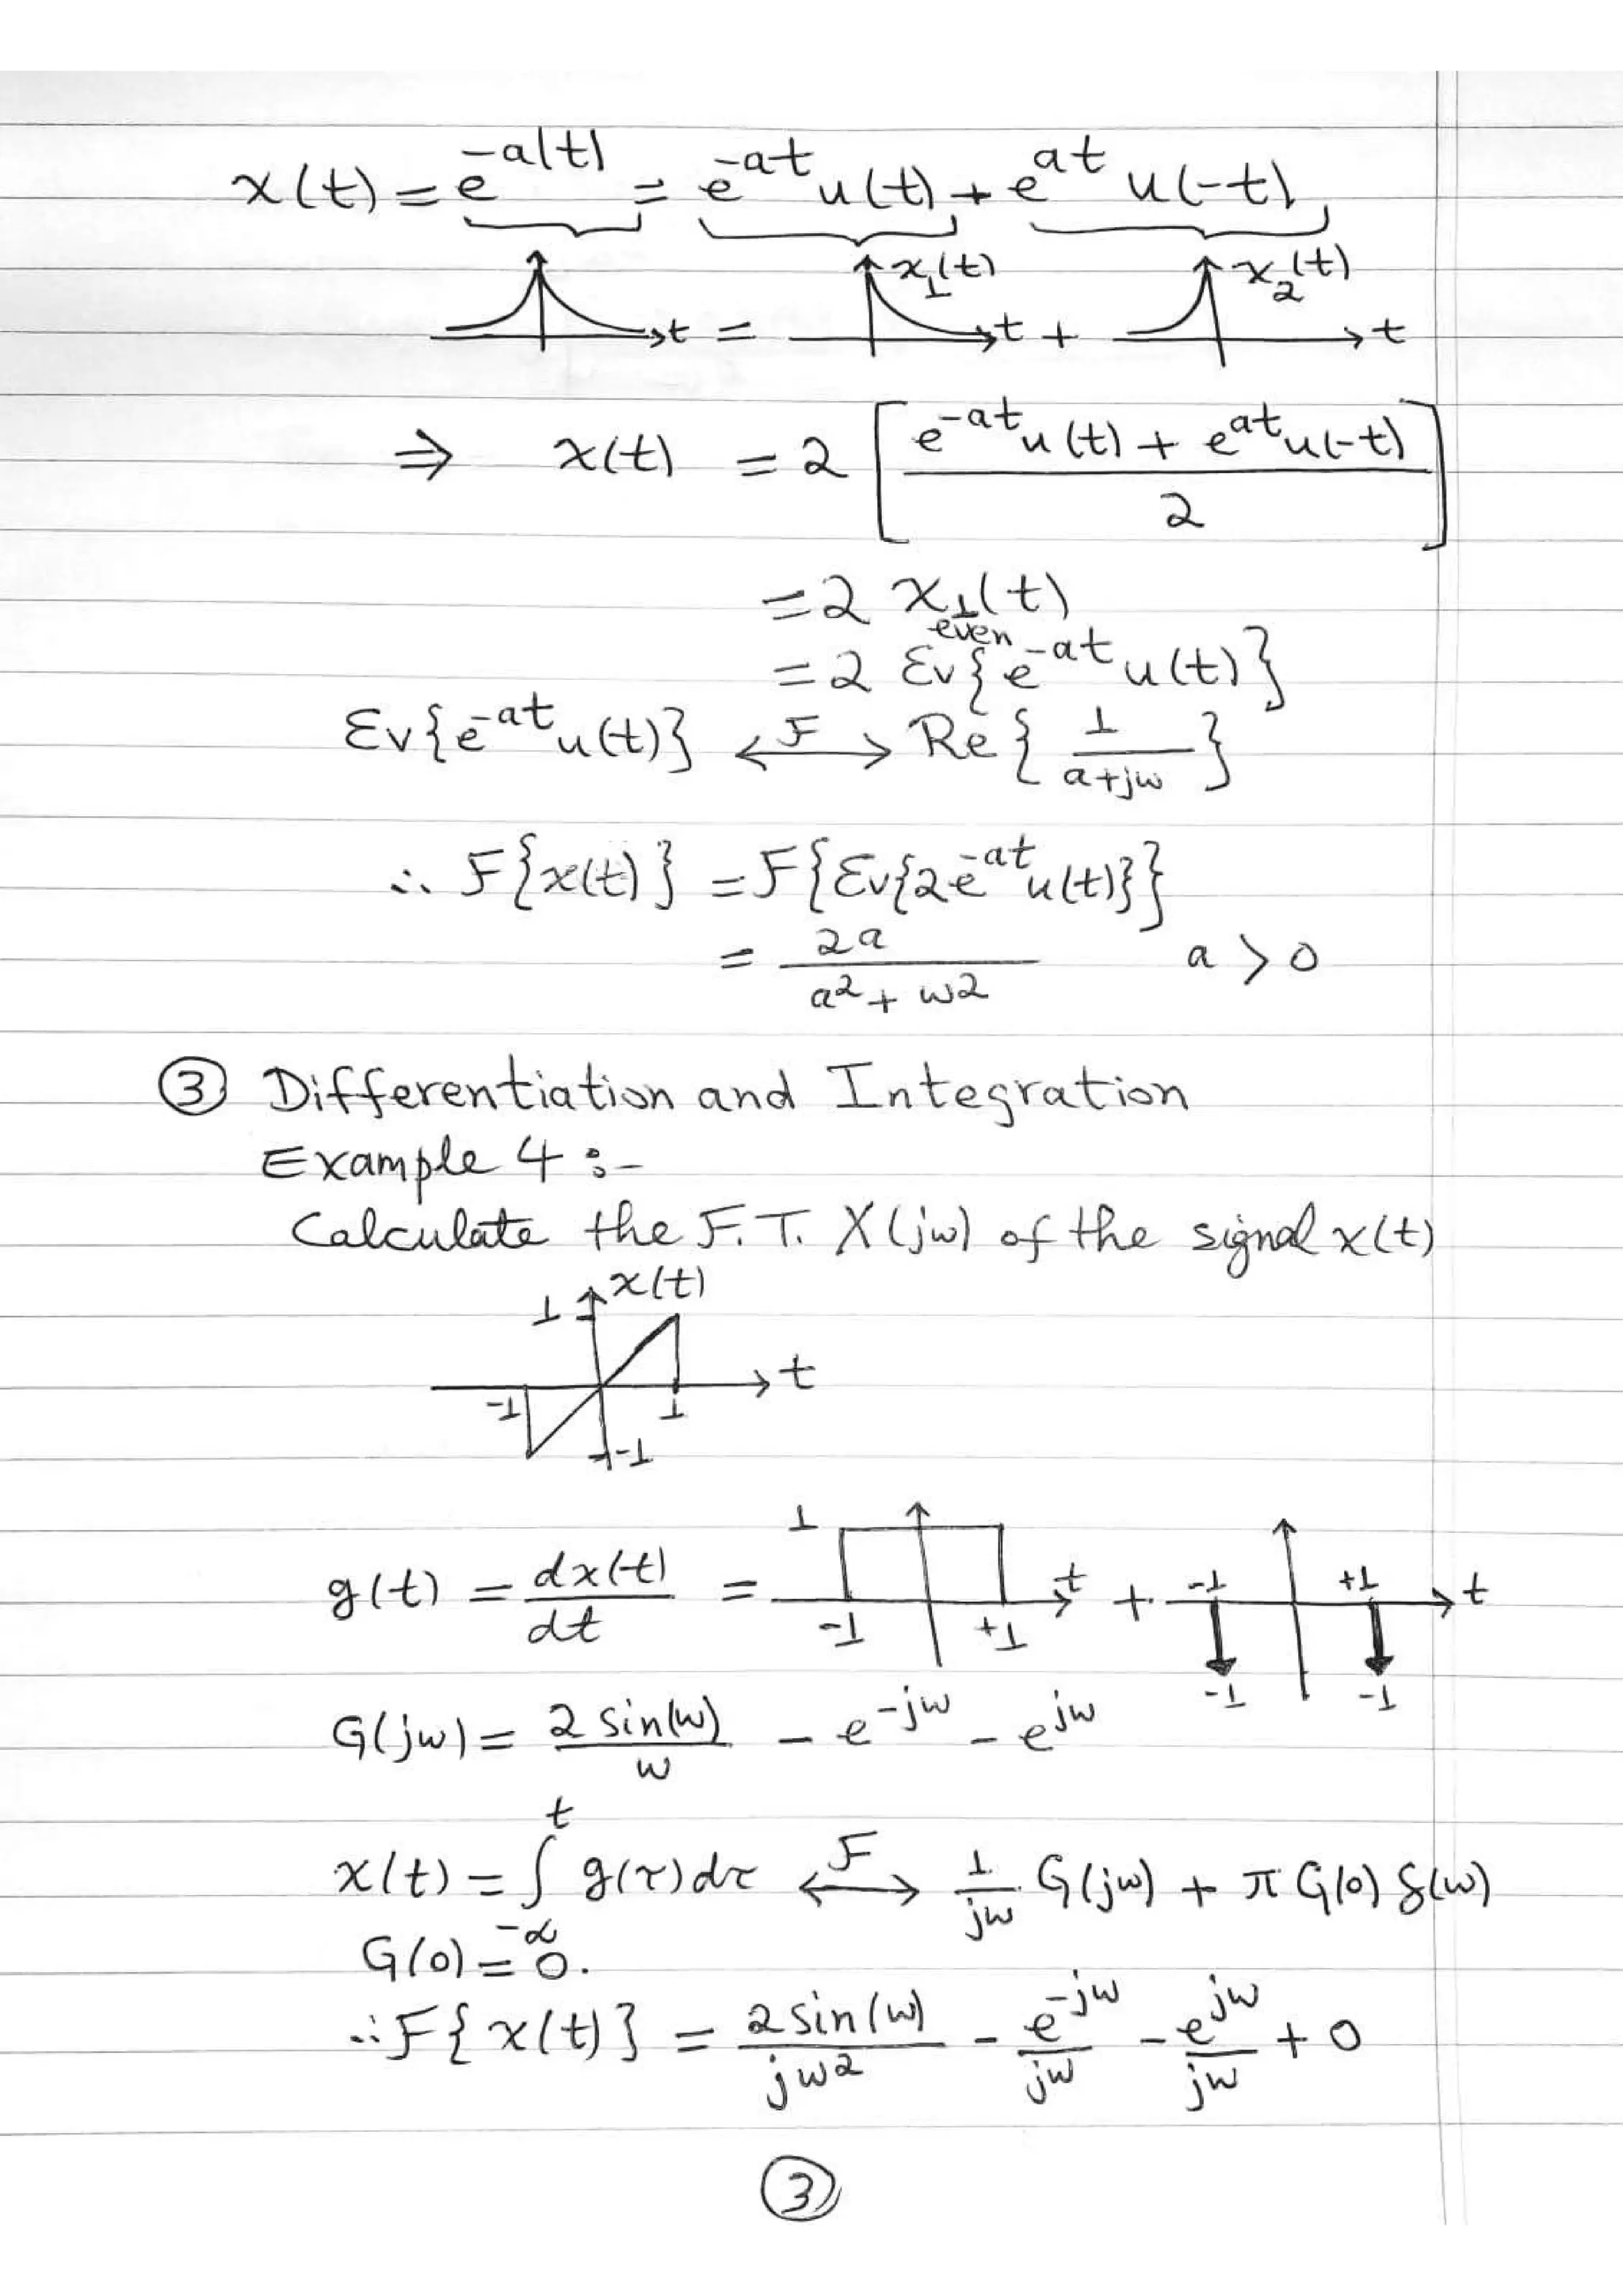 x(t) = e^{-a|t|} = e^{-at} u(t) + e^{at} u(-t)
x₁(t) x₂(t)
t = t + t
⇒ x(t) = 2 [ (e^{-at} u(t) + e^{at} u(-t)) / 2 ]
= 2 x₁(t)
even
= 2 Ev{e^{-at} u(t)}
Ev{e^{-at} u(t)} ⟷^F Re { 1 / (a+jw) }
∴ F{x(t)} = F{Ev{2e^{-at} u(t)}}
= 2a / (a² + w²) a > 0
③ Differentiation and Integration
Example 4 :-
Calculate the F.T. X(jw) of the signal x(t)
1 x(t)
t
-1 1
-1
1
g(t) = dx(t)/dt = t + -1 +1 t
-1 +1
-1 -1
G(jw) = 2 sin(w) / w - e^{-jw} - e^{jw}
x(t) = ∫_{-∞}^{t} g(τ)dτ ⟷^F 1/jw G(jw) + π G(0) δ(w)
G(0) = 0.
∴ F{x(t)} = 2 sin(w) / jw² - e^{-jw} / jw - e^{jw} / jw + 0
③